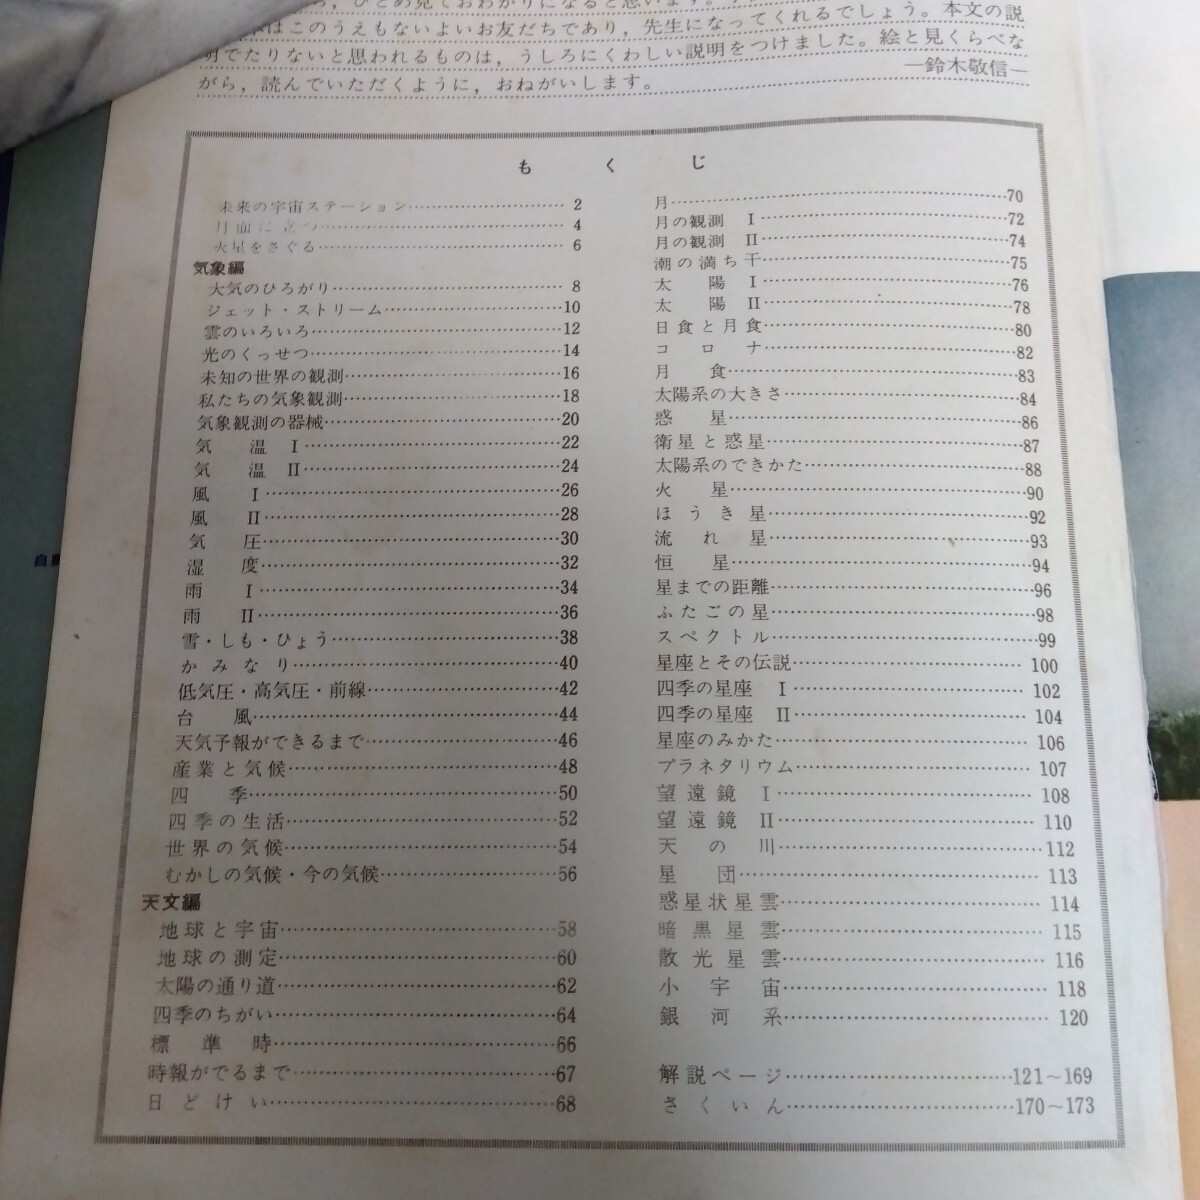 ひとめ見ておわかりになると思います。
はこのうえもないよいお友だちであり，先生になってくれるでしょう。本文の説
明でたりないと思われるものは，うしろにくわしい説明をつけました。絵と見くらべな
がら，読んでいただくように，おねがいします。
―鈴木敬信―
もくじ
未来の宇宙ステーション 2
月面に立つ 4
火星をさぐる 6
気象編
大気のひろがり 8
ジェット・ストリーム 10
雲のいろいろ 12
光のくっせつ 14
未知の世界の観測 16
私たちの気象観測 18
気象観測の器械 20
気温 I 22
気温 II 24
風 I 26
風 II 28
気圧 30
湿度 32
雨 I 34
雨 II 36
雪・しも・ひょう 38
かみなり 40
低気圧・高気圧・前線 42
台風 44
天気予報ができるまで 46
産業と気候 48
四季 50
四季の生活 52
世界の気候 54
むかしの気候・今の気候 56
天文編
地球と宇宙 58
地球の測定 60
太陽の通り道 62
四季のちがい 64
標準時 66
時報がでるまで 67
日どけい 68
月 70
月の観測 I 72
月の観測 II 74
潮の満ち干 75
太陽 I 76
太陽 II 78
日食と月食 80
コロナ 82
月食 83
太陽系の大きさ 84
惑星 86
衛星と惑星 87
太陽系のできかた 88
火星 90
ほうき星 92
流れ星 93
恒星 94
星までの距離 96
ふたごの星 98
スペクトル 99
星座とその伝説 100
四季の星座 I 102
四季の星座 II 104
星座のみかた 106
プラネタリウム 107
望遠鏡 I 108
望遠鏡 II 110
天の川 112
星団 113
惑星状星雲 114
暗黒星雲 115
散光星雲 116
小宇宙 118
銀河系 120
解説ページ 121～169
さくいん 170～173